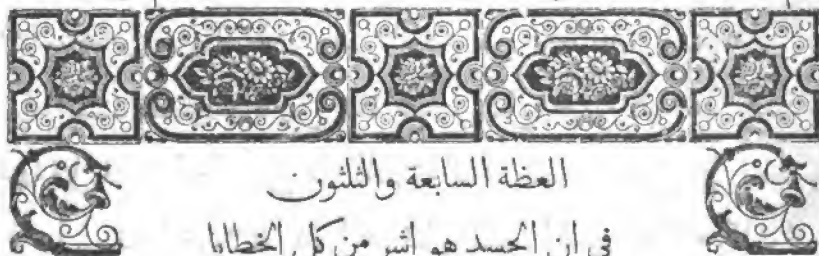 العظة السابعة والثلثون
في ان الحسد هو اشر من كل الخطايا